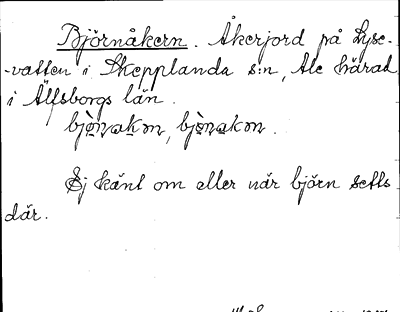 Björnåkern. Åkerjord på Lyse-
-vatten i Skepplanda s:n, Ale härad
i Älfsborgs län.
Ej känt om eller när björn setts
där.